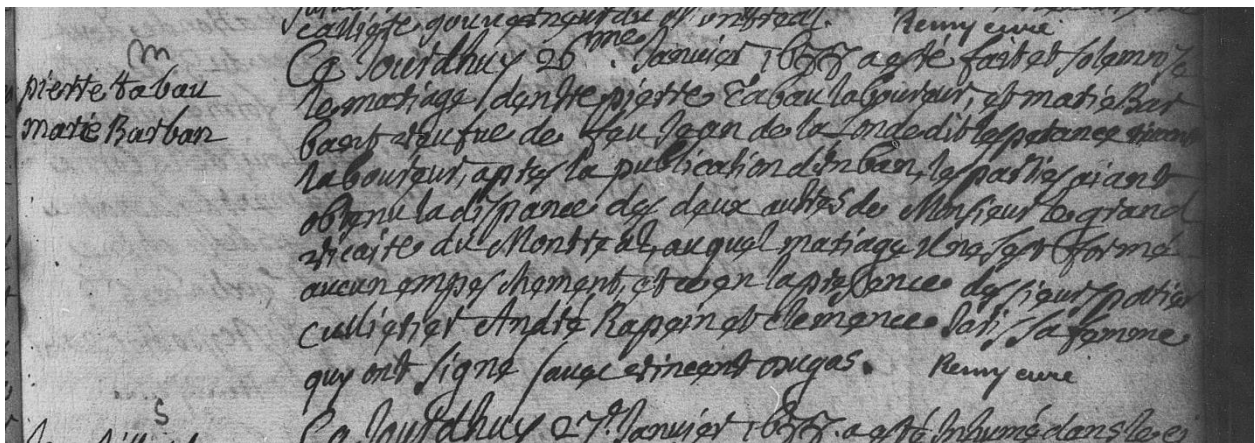 calliere gouverneur du Montreal.
Remy curé
m
pierre tabau
marie Barban
Ce Jourdhuy 26me Janvier 1688 a esté fait et solemnisé
le mariage dentre pierre tabau laboureur, et marie Bar
bant veufue de feu Jean de la Londe dit lesperance vivant
laboureur, apres la publication dun ban, les parties aiant
obtenu la dispance des deux autres de Monsieur le grand
vicaire du Montreal, auquel mariage il ne sest formé
aucun empeschement, et en la presence des sieurs
Cullerier André Rapein et Clemence Jari sa femme
quy ont signé avec vincent dugas.
Remy curé
S
Ce Jourdhuy 27e Janvier 1688. a esté Inhumé dans le ci